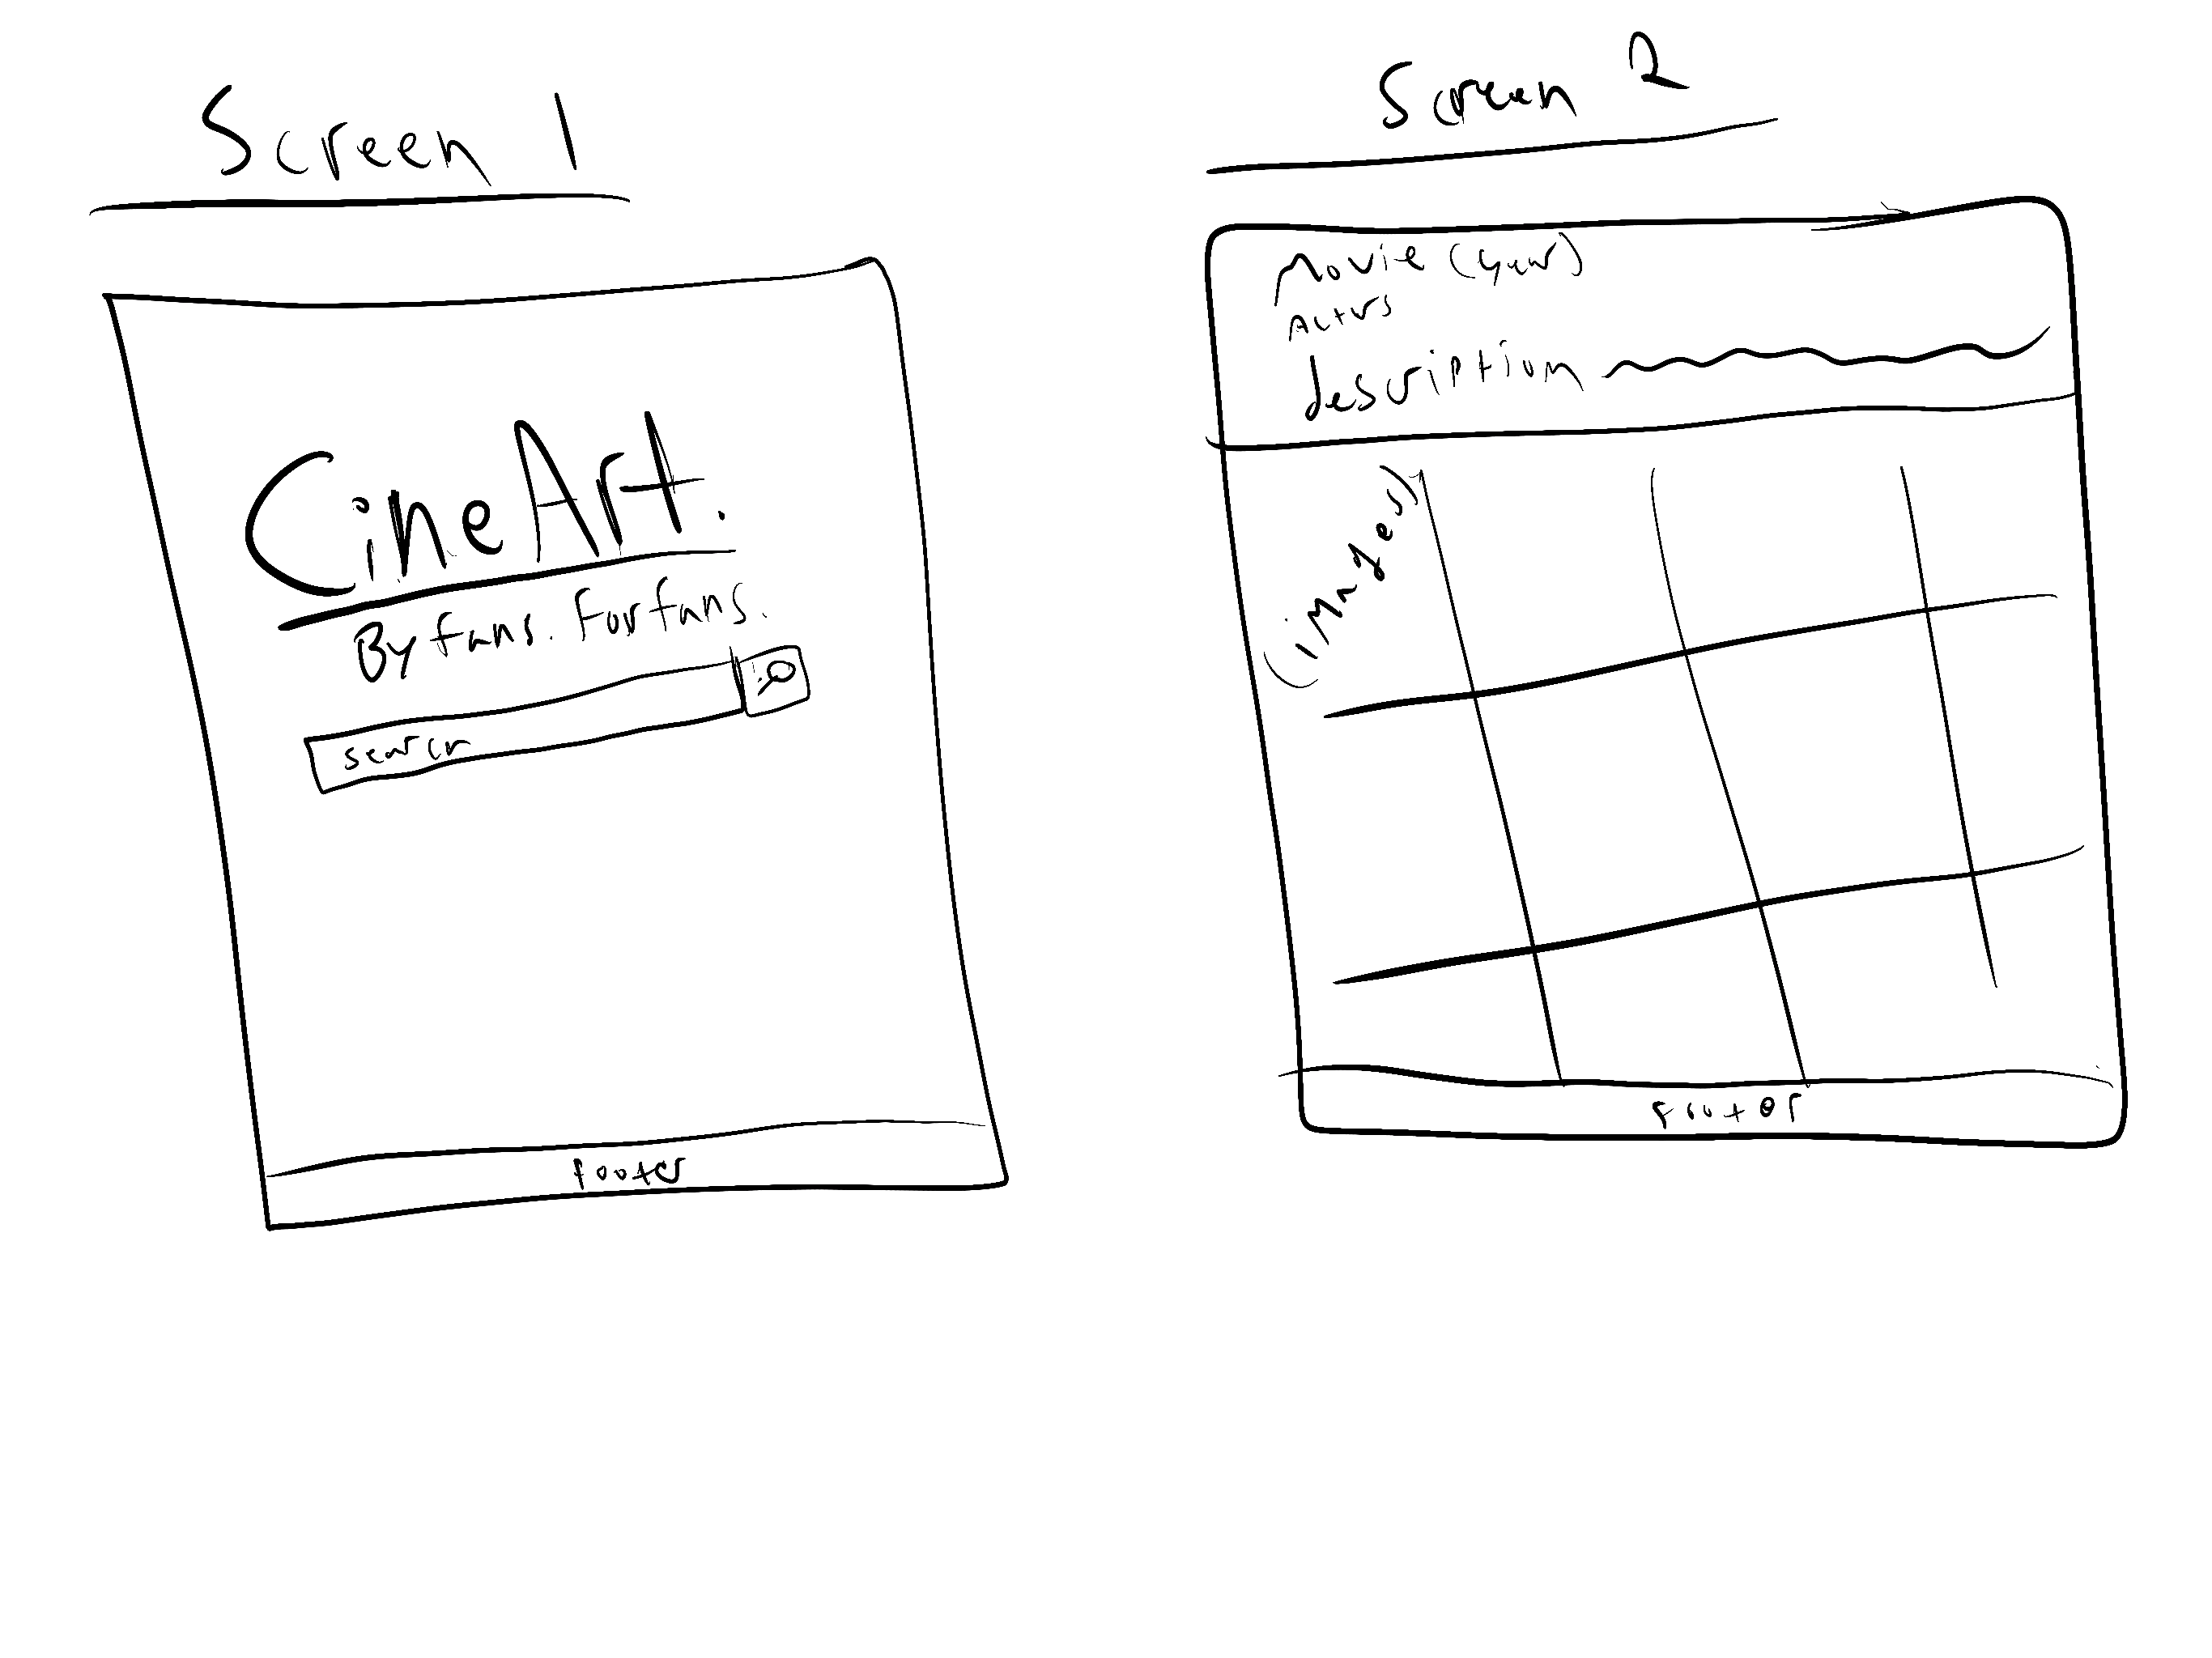 Screen 1
CineArt.
By fans. For fans.
search
footer
Screen 2
Movie (year)
Actors
description
(images)
footer